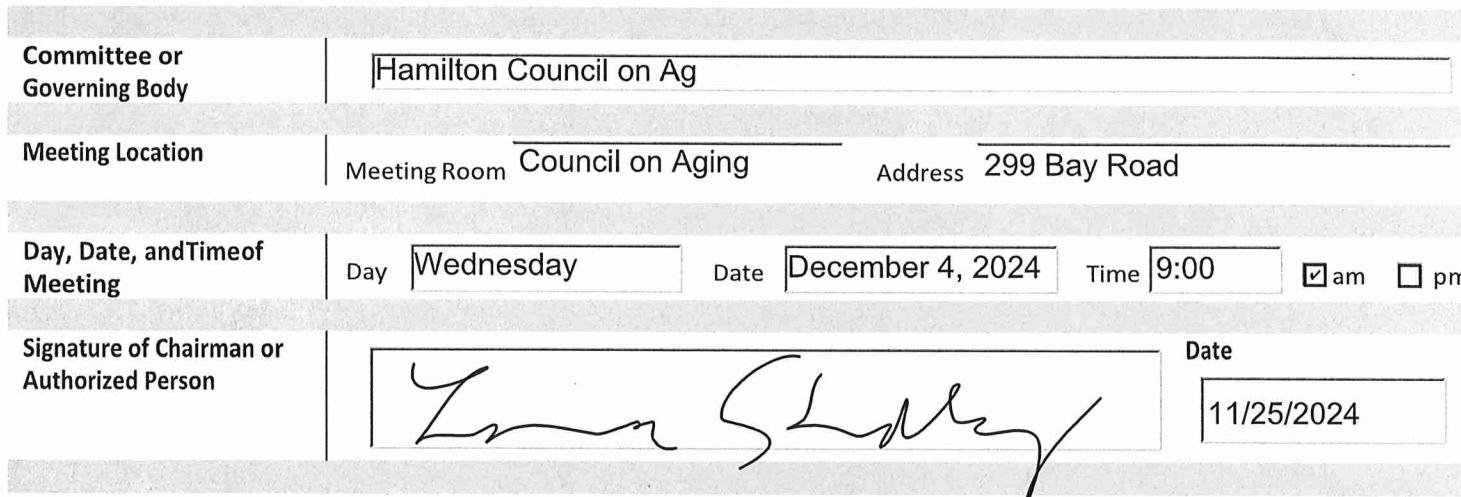 Committee or
Governing Body
Hamilton Council on Ag
Meeting Location
Meeting Room Council on Aging Address 299 Bay Road
Day, Date, andTimeof
Meeting
Day Wednesday Date December 4, 2024 Time 9:00 ☑ am ☐ pm
Signature of Chairman or
Authorized Person
Date
11/25/2024